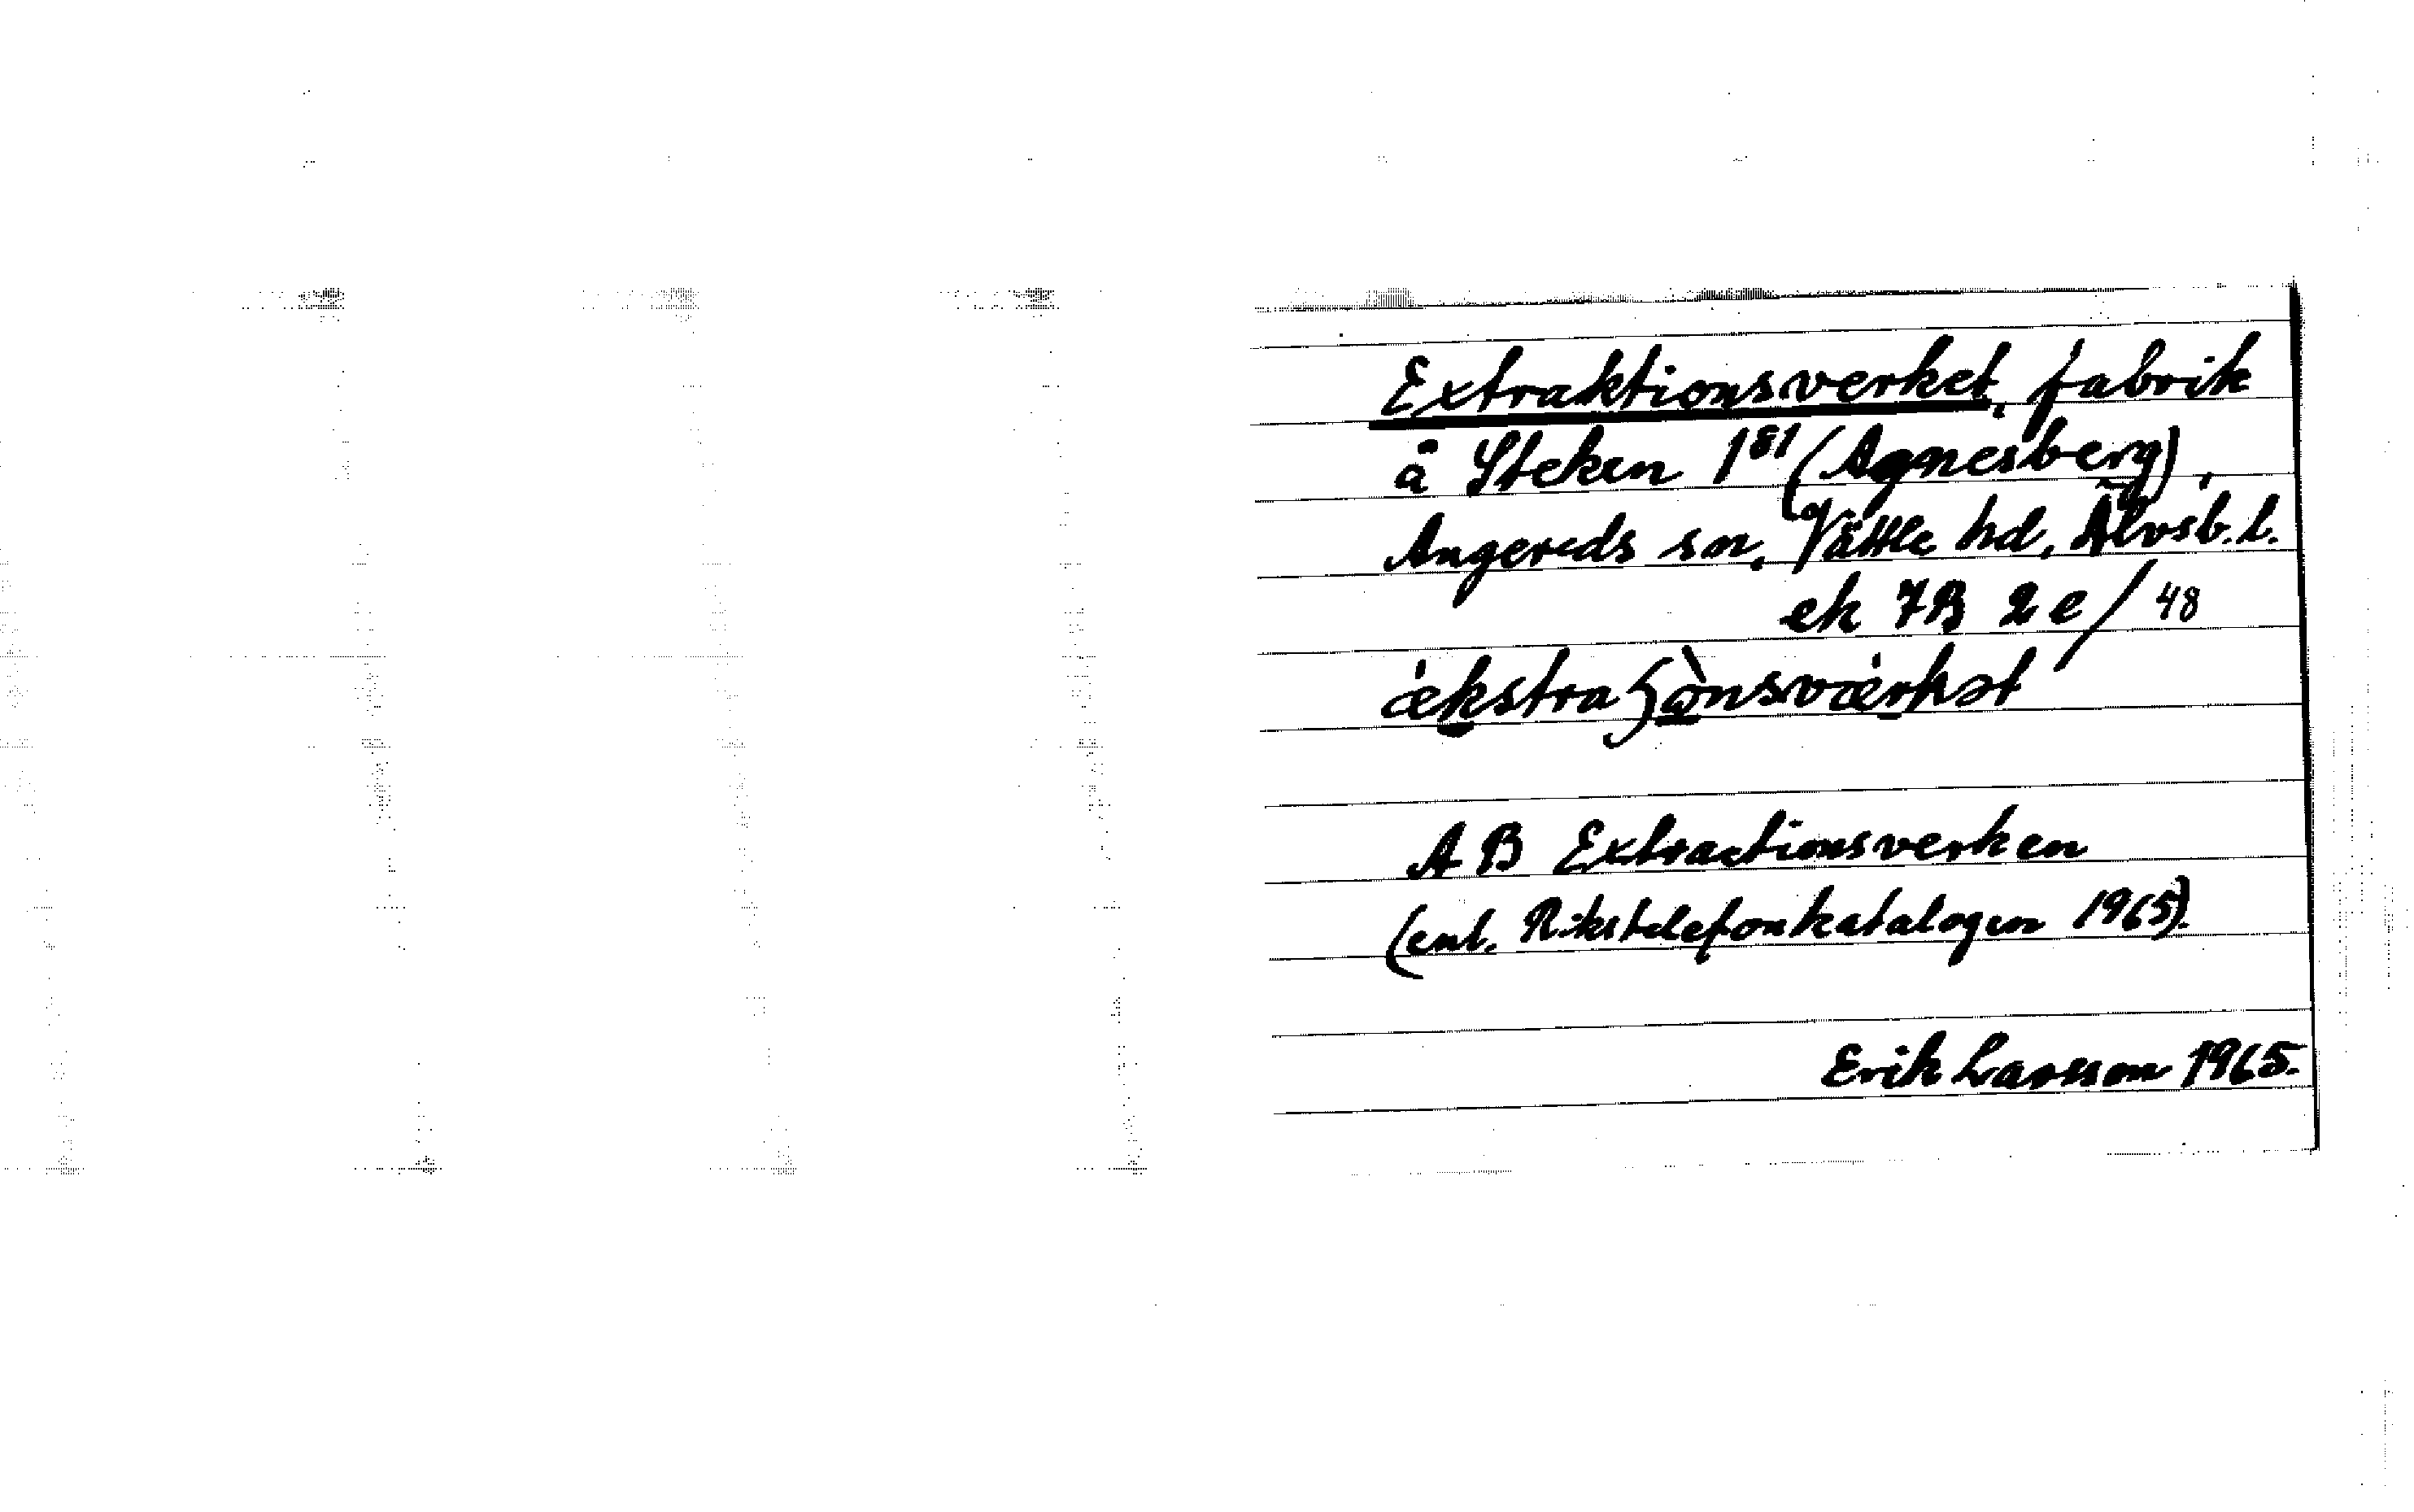 Extraktionsverket, fabrik
å Steken 1⁸¹ (Agnesberg),
Angereds sn, Vättle hd, Älvsb. l.
ek 7B 2e/48
AB Extractionsverken
(enl. Rikstelefonkatalogen 1965).
Erik Larsson 1965.